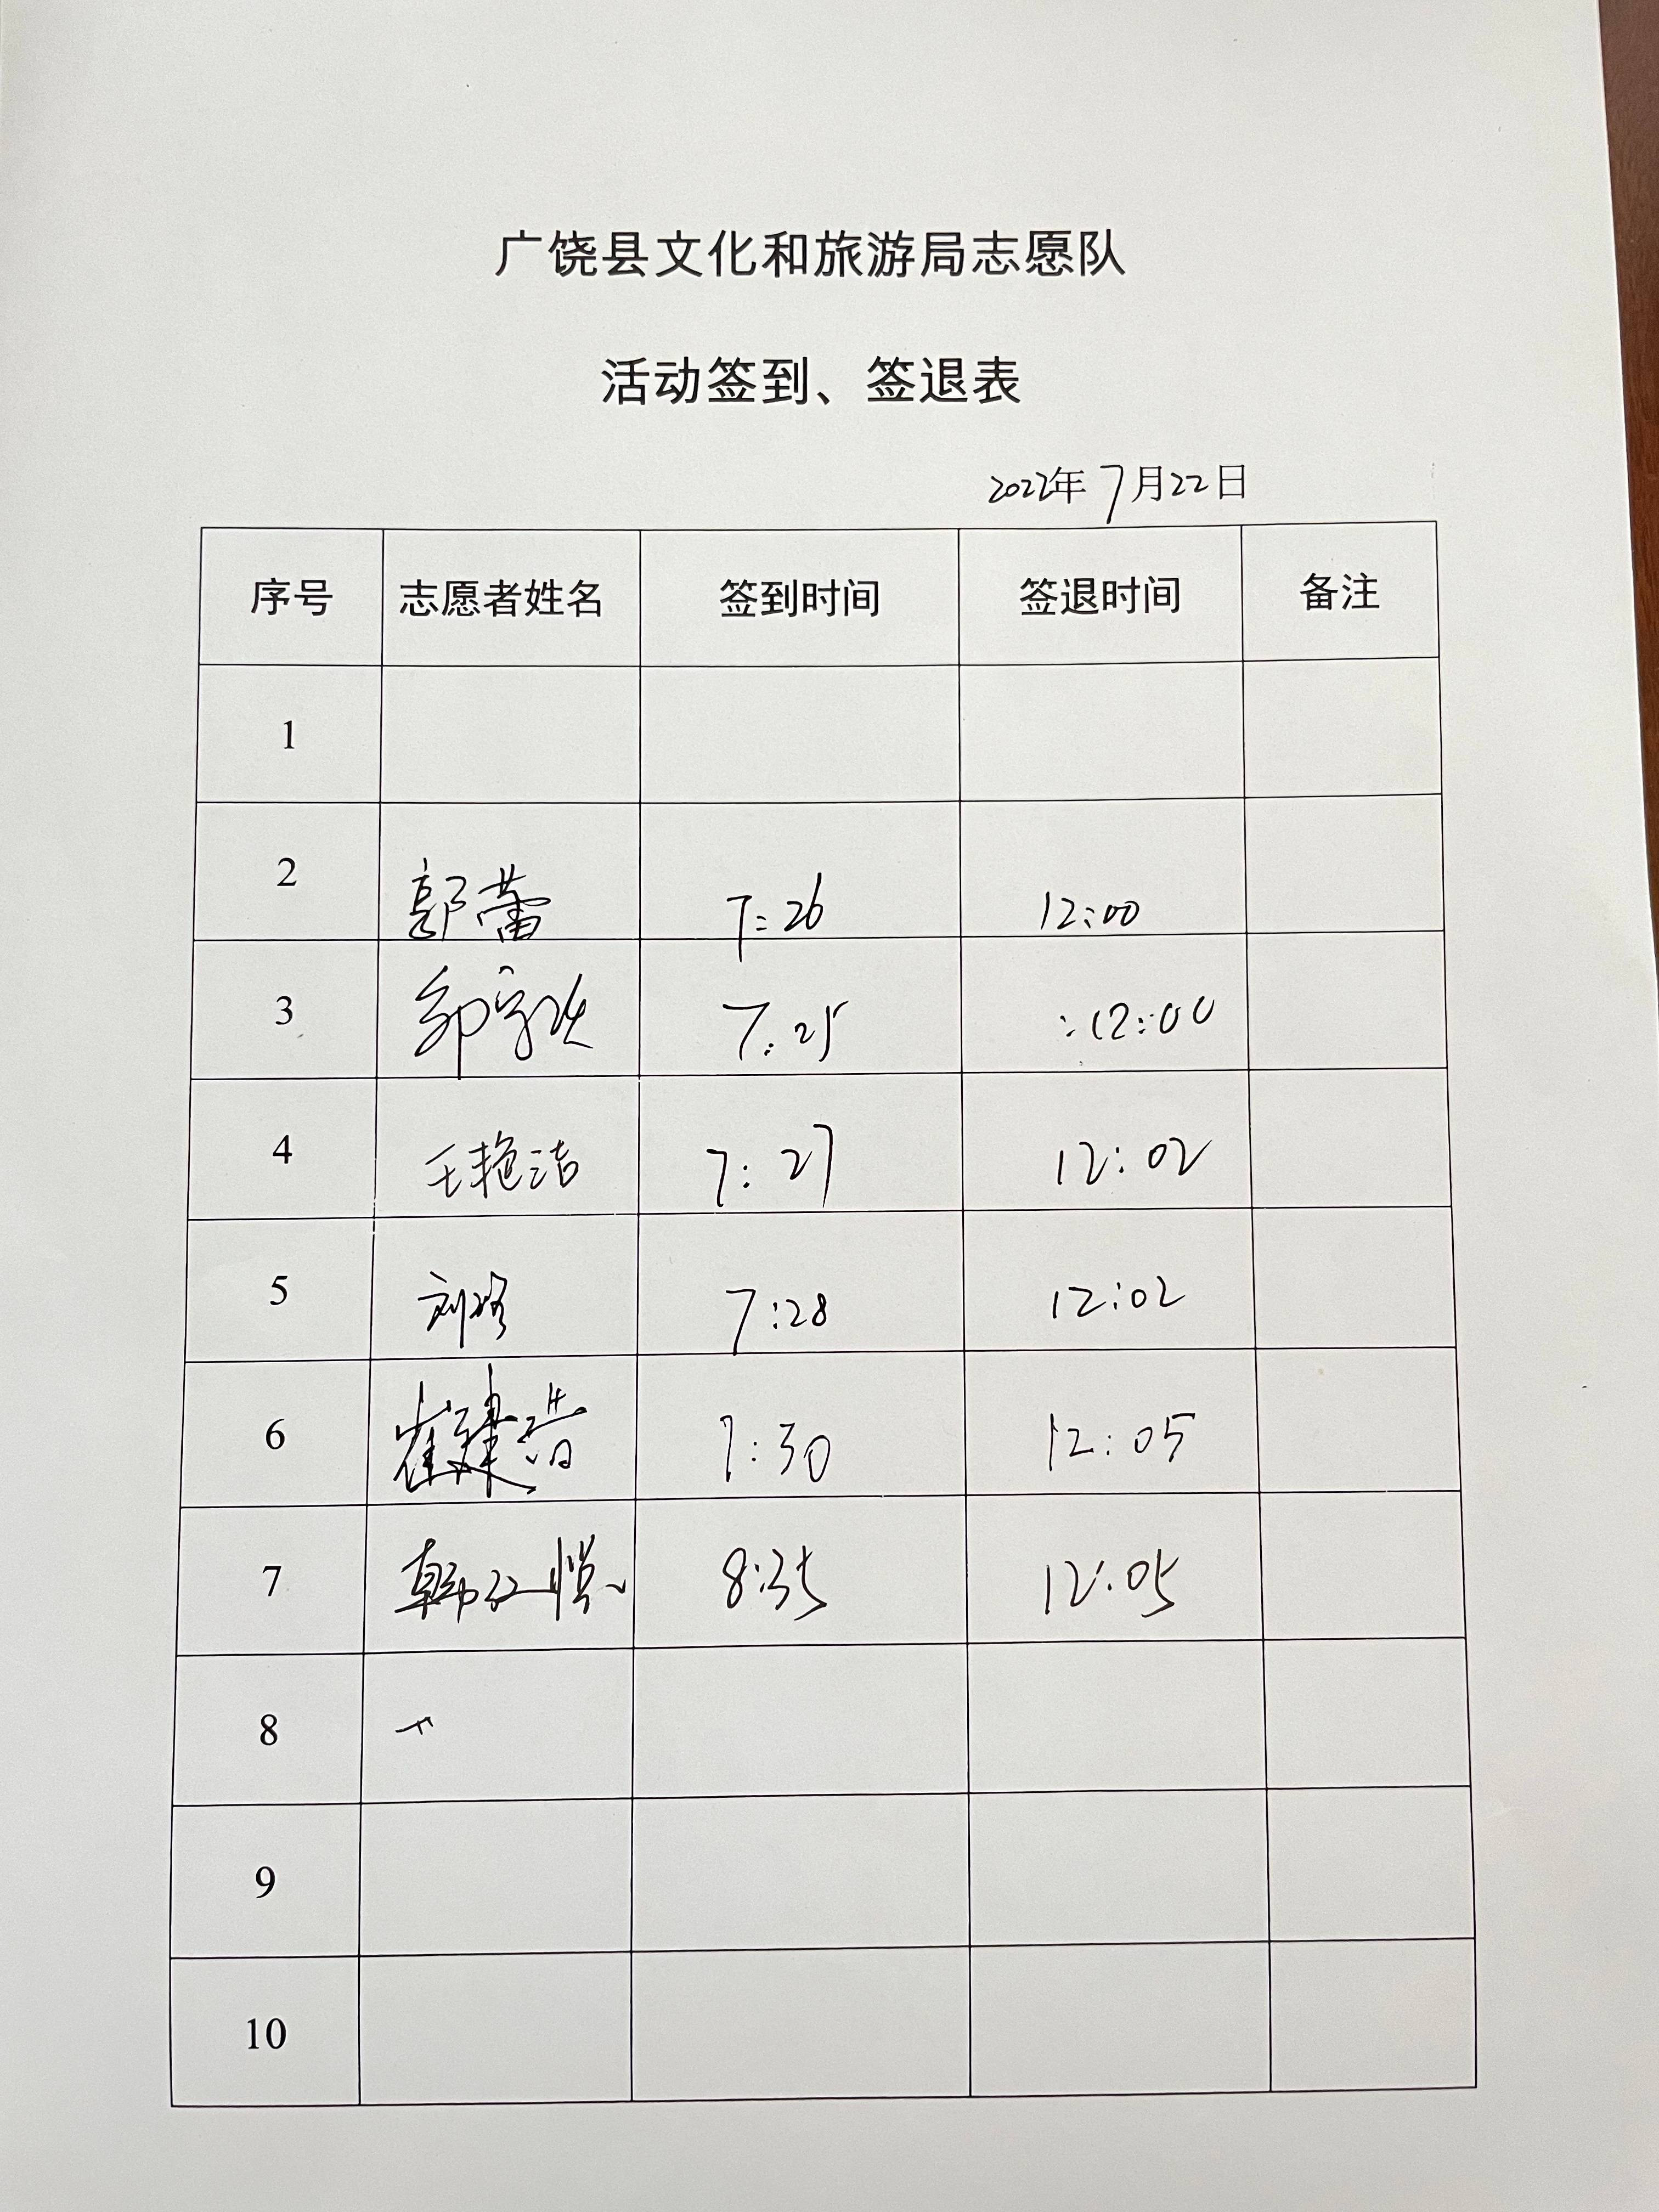 广饶县文化和旅游局志愿队
活动签到、签退表
2022年7月22日
序号 志愿者姓名 签到时间 签退时间 备注
1
2 郭蕾 7:26 12:00
3 7:25 :12:00
4 王艳洁 7:27 12:02
5 刘 7:28 12:02
6 崔建浩 7:30 12:05
7 韩红 8:35 12:05
8
9
10